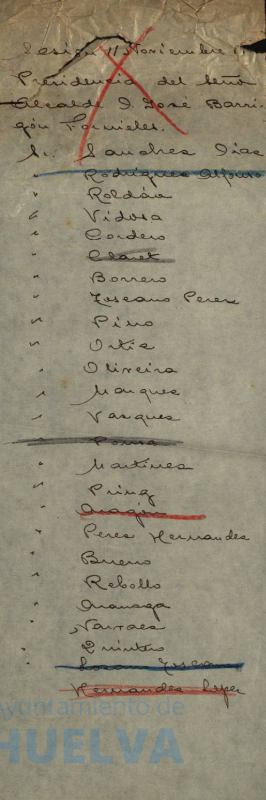 Sesion 11 Noviembre
Presidencia del Señor
Alcalde D. José Barri-
gón Fornieles.
Sr. Landres Días
" Rodrígues Alfonso
" Roldán
" Vidosa
" Cordero
" Claret
" Borrero
" Toscano Peres
" Pino
" Ortis
" Oliveira
" Marques
" Vasques
" Pousa
" Martines
" Pring
" Aragón
Peres Hernandes
" Bueno
" Rebollo
" Aranaga
" Narvaes
" Quintero
Hernandes Lopes
Ayuntamiento de
HUELVA